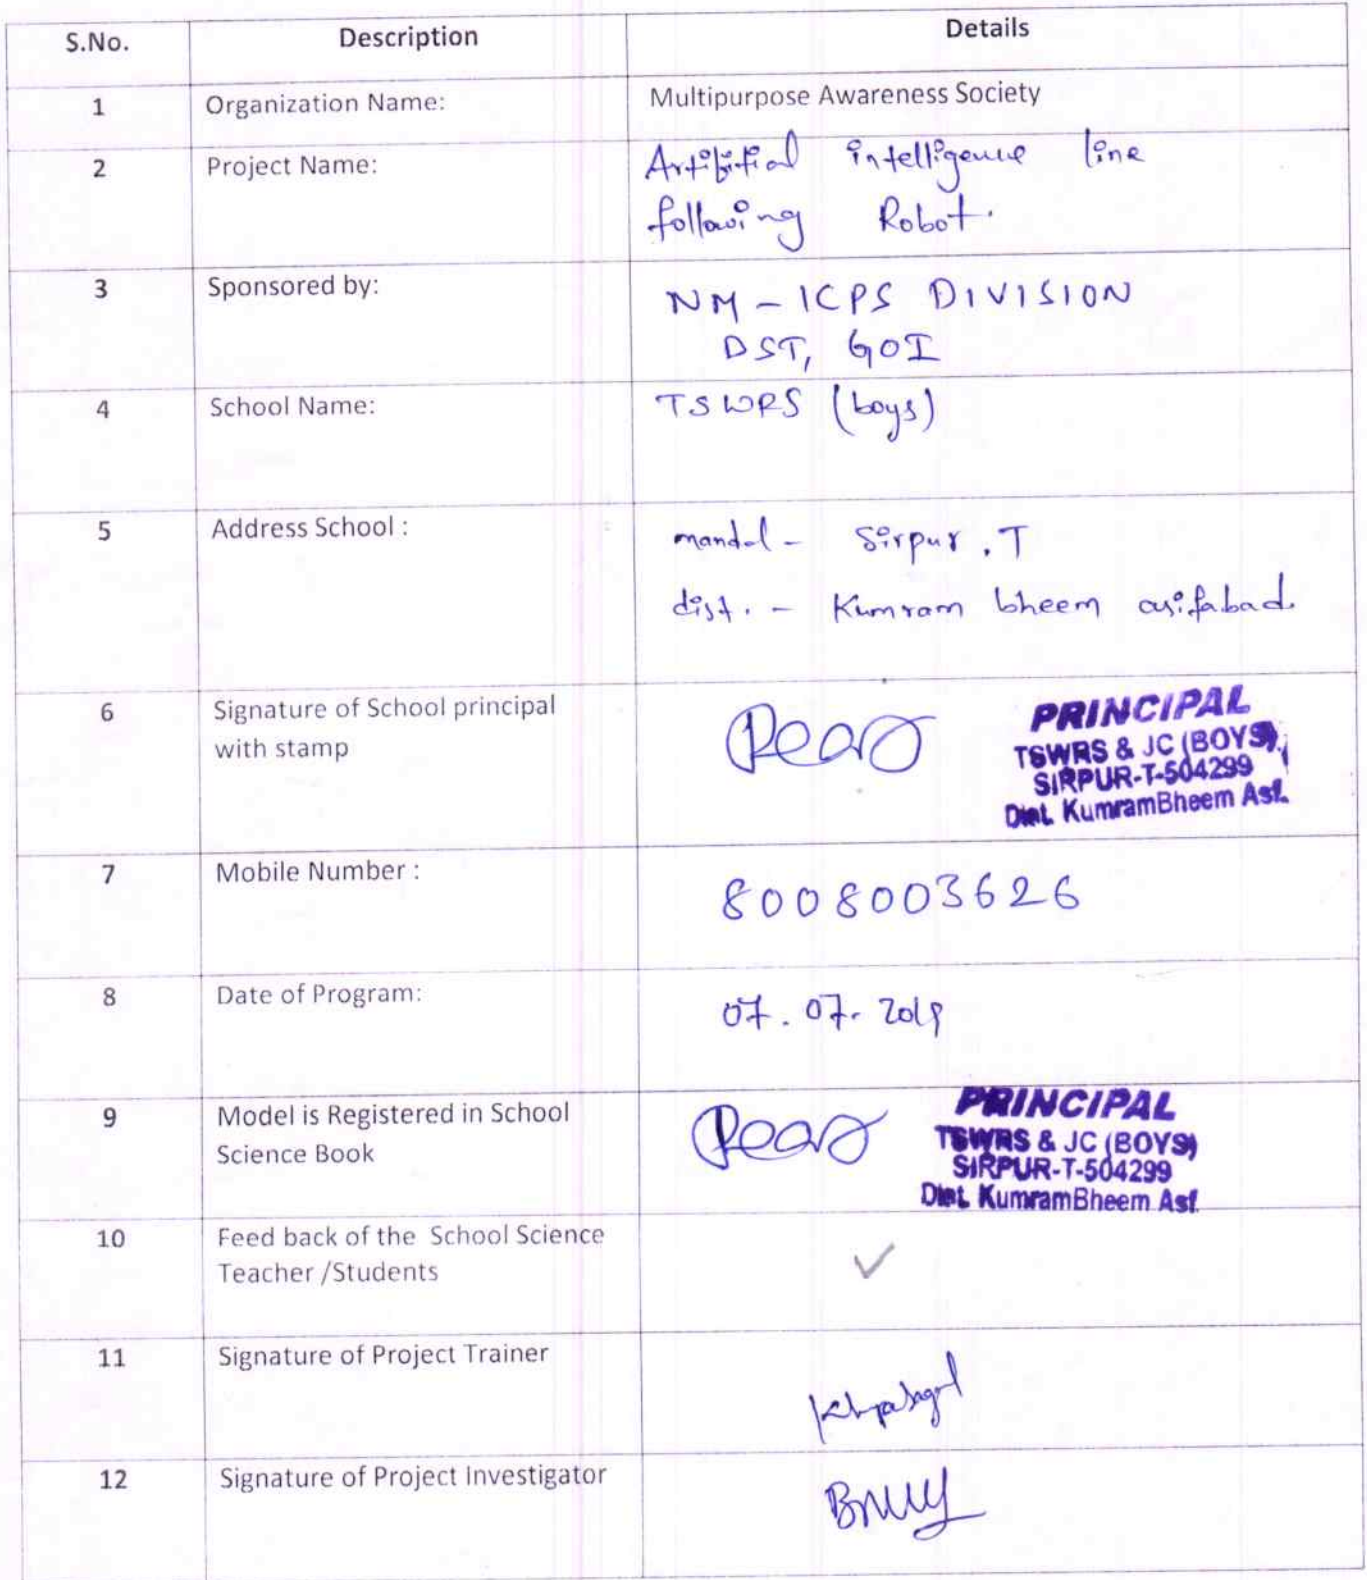 S.No. Description Details
1 Organization Name: Multipurpose Awareness Society
2 Project Name: Artifitial intelligence line
following Robot.
3 Sponsored by: NM - ICPS DIVISION
DST, GOI
4 School Name: TSWRS (boys)
5 Address School : mandal - Sirpur . T
dist. - Kumram bheem asifabad.
6 Signature of School principal
with stamp
PRINCIPAL
TSWRS & JC (BOYS)
SIRPUR-T-504299
Dist. KumramBheem Asf.
7 Mobile Number : 8008003626
8 Date of Program: 07.07.2019
9 Model is Registered in School
Science Book
PRINCIPAL
TSWRS & JC (BOYS)
SIRPUR-T-504299
Dist. KumramBheem Asf.
10 Feed back of the School Science
Teacher /Students ✓
11 Signature of Project Trainer
12 Signature of Project Investigator